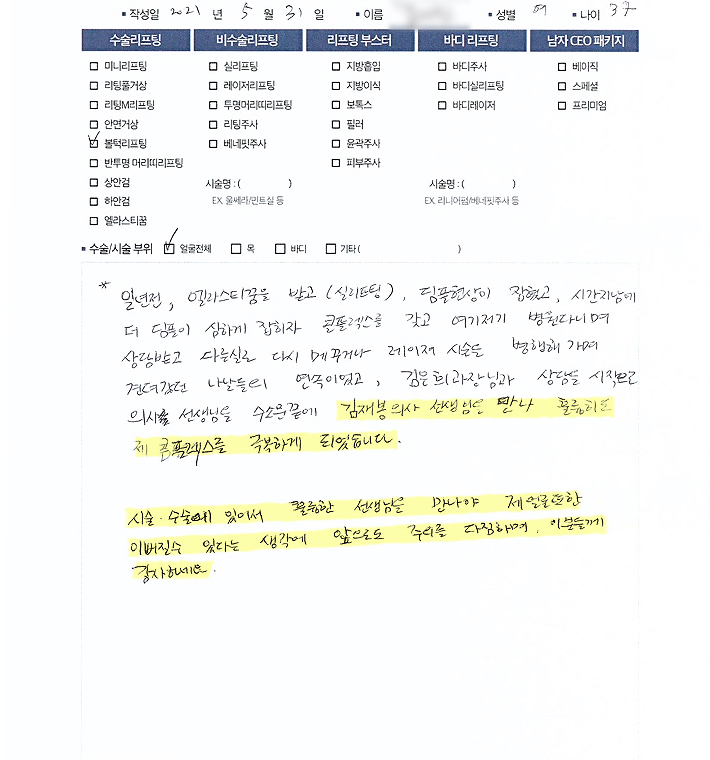 ▪ 작성일 2021 년 5 월 31 일 ▪ 이름 ▪ 성별 여 ▪ 나이 37
수술리프팅 비수술리프팅 리프팅 부스터 바디 리프팅 남자 CEO 패키지
□ 미니리프팅 □ 실리프팅 □ 지방흡입 □ 바디주사 □ 베이직
□ 리팅풀거상 □ 레이저리프팅 □ 지방이식 □ 바디실리프팅 □ 스페셜
□ 리팅M리프팅 □ 투명머리띠리프팅 □ 보톡스 □ 바디레이저 □ 프리미엄
□ 안면거상 □ 리팅주사 □ 필러
☑ 볼턱리프팅 □ 베네핏주사 □ 윤곽주사
□ 반투명 머리띠리프팅 □ 피부주사
□ 상안검 시술명 : ( ) 시술명 : ( )
□ 하안검 EX. 울쎄라/민트실 등 EX. 리니어펌/베네핏주사 등
□ 엘라스티꿈
▪ 수술/시술 부위 ☑ 얼굴전체 □ 목 □ 바디 □ 기타 ( )
* 일년전, 엘라스티꿈을 받고 (실리프팅), 딤플현상이 잡혔고, 시간지남에
더 딤플이 심하게 잡히자 콤플렉스를 갖고 여기저기 병원다니며
상담받고 다른실로 다시 메꾸거나 레이저 시술을 병행해 가며
견뎌갔던 나날들의 연속이었고, 김은희과장님과 상담을 시작으로
의사 선생님을 수소문끝에 김재봉의사 선생님을 만나 훌륭히도
제 콤플렉스를 극복하게 되었습니다.
시술·수술에 있어서 훌륭한 선생님을 만나야 제얼굴또한
이뻐질수 있다는 생각에 앞으로도 주의를 다짐하며, 이분들께
감사하네요.